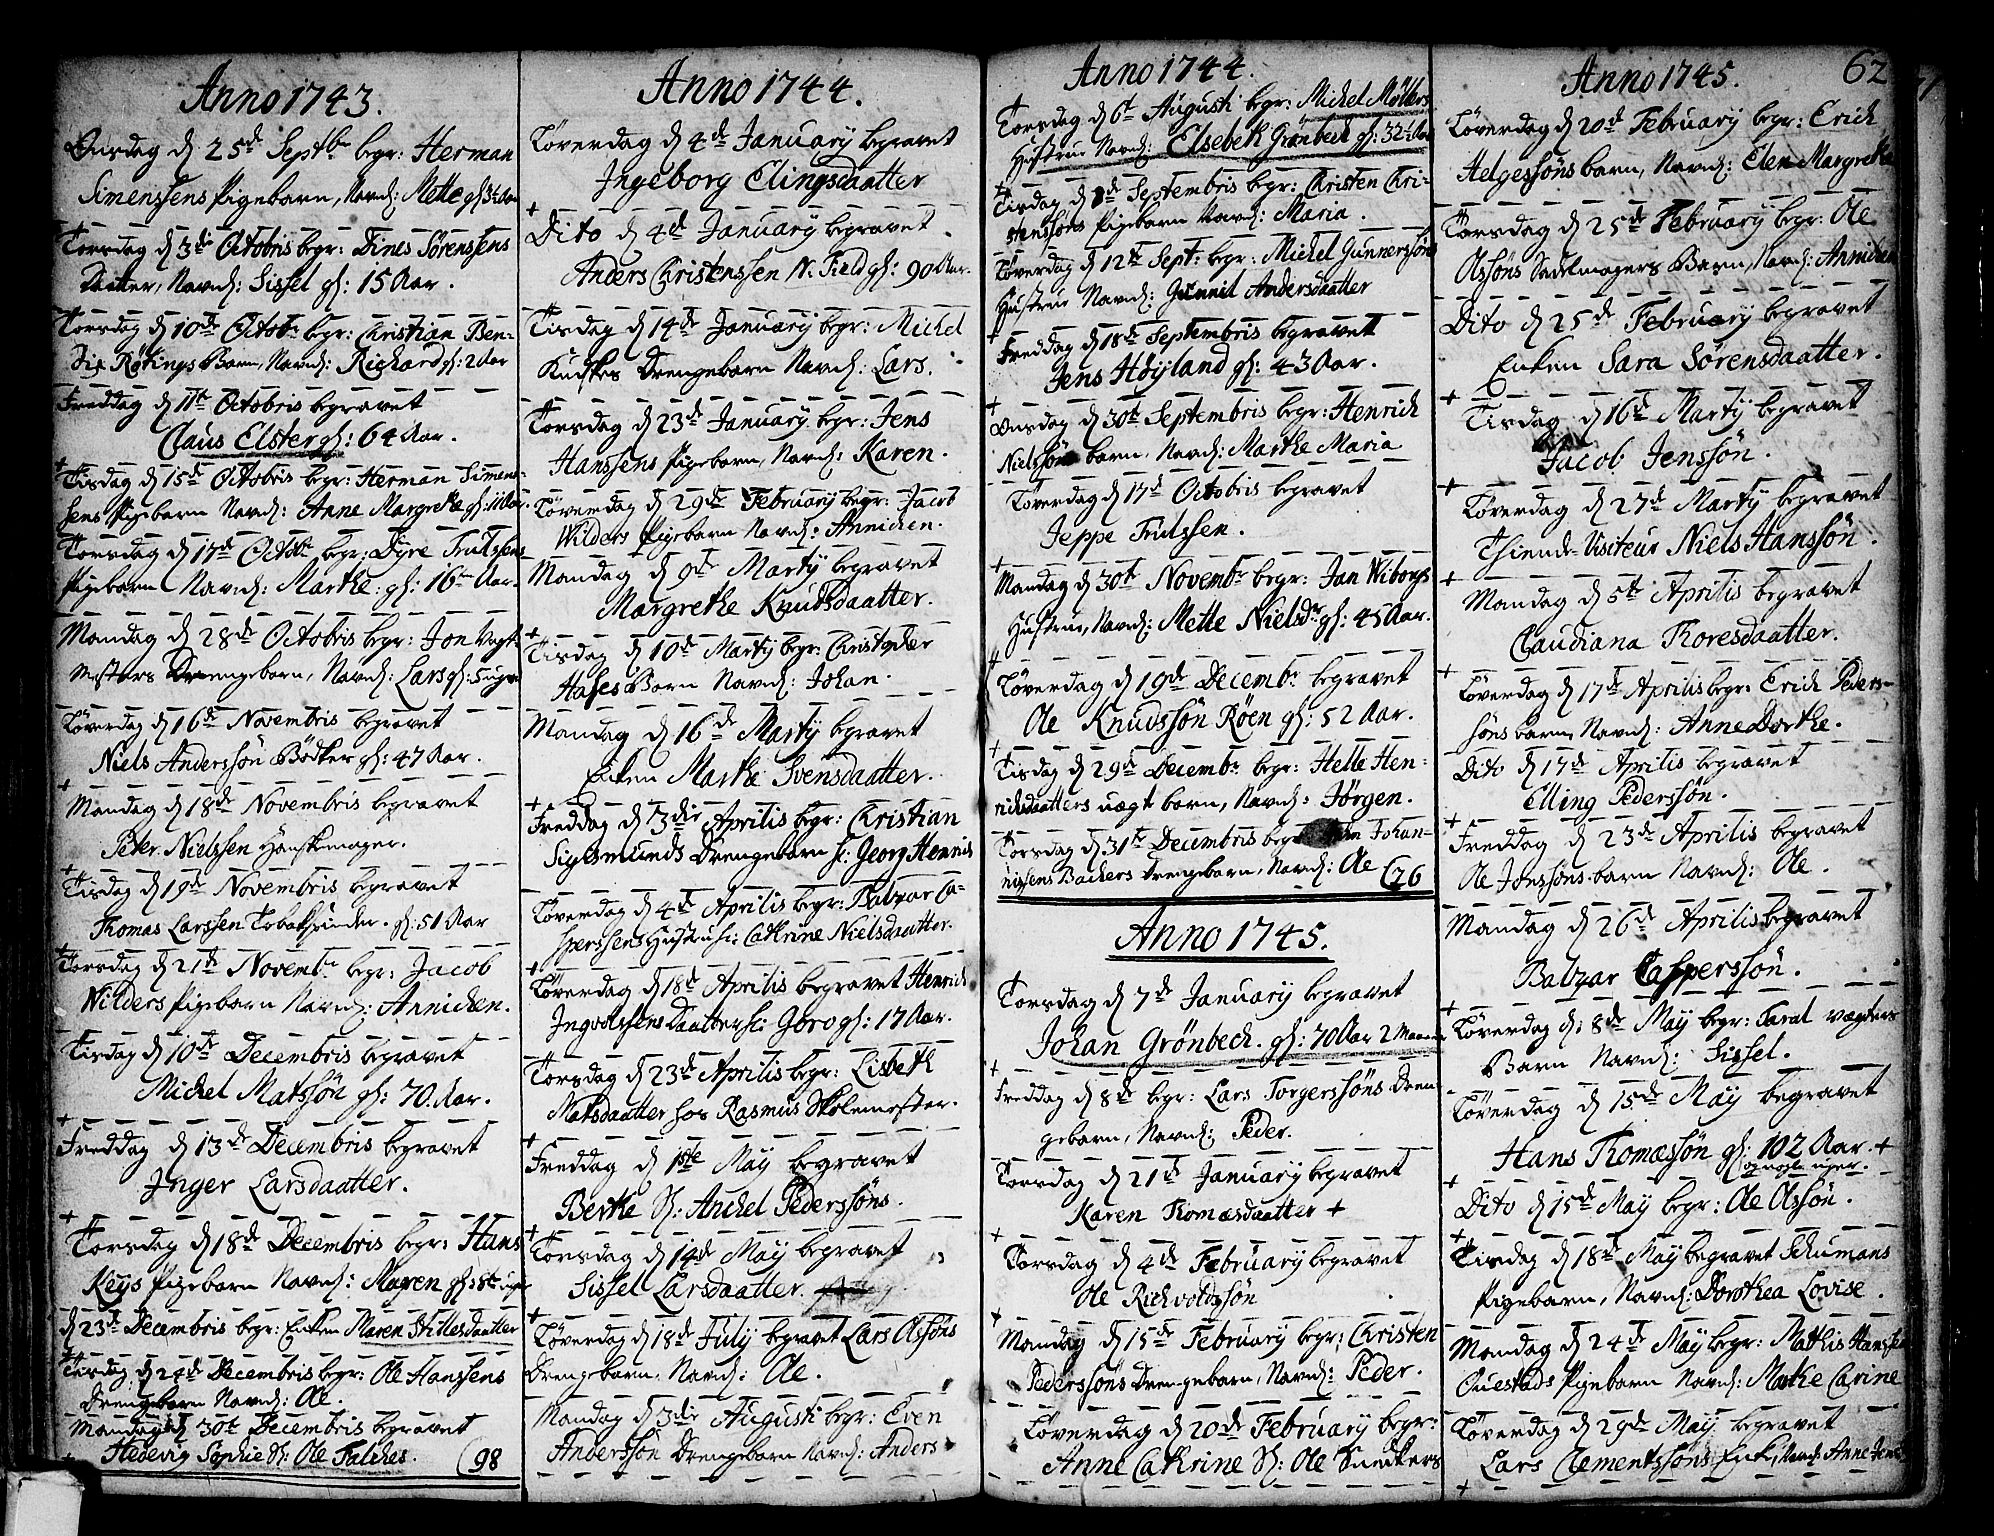 Anno 1743.
Onsdag d 25de Septbr begr: Herman
Simenssens Pigebarn, Navnl: Mette gl: 3½ Aar
Torsdag d 3die Octobris begr: Dines Sørenssens
Daatter, Navnl: Sissel gl: 15 Aar.
Torsdag d 10de Octobr begr: Christian Ben-
dix Røtings Barn, Navnl: Richard gl: 2 Aar
Freddag d 11te Octobris begravet
Claus Elster gl: 64 Aar.
Tisdag d 15de Octobris begr: Herman Simens-
sens Pigebarn Navnl: Anne Margrethe gl: 11 Aar.
Torsdag d 17de Octobr begr: Dyre Trulssens
Pigebarn Navnl: Marthe gl: 16 Aar.
Mandag d 28de Octobris begr: Jon Vagt-
mesters Drengebarn, Navnl: Lars gl: 5 uger
Løverdag d 16de Novembris begravet
Niels Anderssøn Bødker gl: 47 Aar.
Mandag d 18de Novembris begravet
Peter Nielssen Handskemager.
Tisdag d 19de Novembris begravet
Thomas Larssen Tobakspinder. gl: 51 Aar
Torsdag d 21de Novembr begr: Jacob
Wilders Pigebarn Navnl: Annichen.
Tisdag d 10de Decembris begravet
Michel Matssøn gl: 70. Aar.
Freddag d 13de Decembris begravet
Inger Larsdaatter.
Torsdag d 18de Decembris begr: Hans
Keys Pigebarn Navnl: Maren gl: 8te uger
d 23de Decembris begr: Enken Maren Stillesdaatter
Tisdag d 24de Decembris begr: Ole Hanssens
Drengebarn Navnl: Ole.
Mandag d 30te Decembris begravet
Hedevig Sophie Sl: Ole Falches. (98
Anno 1744.
Løverdag d 4de January begravet
Ingeborg Elingsdaatter
Dito d 4de January begravet
Anders Christenssen N: Field gl: 90 Aar.
Tisdag d 14de January begr: Michel
Kudskes Drengebarn Navnl: Lars.
Torsdag d 23de January begr: Jens
Hanssens Pigebarn, Navnl: Karen.
Løverdag d 29de February begr: Jacob
Wilders Pigebarn Navnl: Annichen.
Mandag d 9de Marty begravet
Margrethe Knudsdaatter.
Tisdag d 10de Marty begr: Christopher
Hases Barn Navnl: Johan.
Mandag d 16de Marty begravet
Enken Marthe Svensdaatter.
Freddag d 3die Aprilis begr: Christian
Sigesmunds Drengebarn sc: Georg Henrich
Løverdag d 4de Aprilis begr: Balzar Ca-
sperssens Hustru sc: Cathrine Nielsdaatter.
Løverdag d 18de Aprilis begravet Henrich
Ingvorssens Daatter sc: Goro gl: 17 Aar.
Torsdag d 23de Aprilis begr: Lisbeth
Matsdaatter hos Rasmus Skolemester.
Freddag d 1ste May begravet
Berthe Sl: Anchel Pederssøns.
Torsdag d 14de May begravet
Sissel Larsdaatter.
Løverdag d 18de July begravet Lars Olssøns
Drengebarn, Navnl: Ole.
Mandag d 3die Augusti begr: Even
Anderssøn Drengebarn Navnl: Anders
Anno 1744.
Torsdag d 6te Augusti begr: Michel Møllers
Hustrue Navnl: Elsebeth Grønbech gl: 32½ Aar
Tisdag d 8de Septembris begr: Christen Chri-
stenssøns Pigebarn Navnl: Maria.
Løverdag d 12te Sept: begr: Michel Gunnerssøns
Hustrue Navnl: Gunnil Andersdaatter
Freddag d 18de Septembris begravet
Jens Høyland gl: 43 Aar.
Onsdag d 30te Septembris begr: Henrich
Nielssøns barn, Navnl: Marthe Maria
Løverdag d 17de Octobris begravet
Jeppe Trulssen.
Mandag d 30te Novembr begr: Jan Wiborgs
Hustrue, Navnl: Mette Nielsdr gl: 45 Aar.
Løverdag d 19de Decembr begravet
Ole Knudssøn Røen gl: 52 Aar.
Tisdag d 29de Decembr begr: Helle Hen-
richsdaatters uægt barn, Navnl: Jørgen.
Torsdag d 31te Decembris begr Johan-
nissens Bachers Drengebarn, Navnl: Ole (76
Anno 1745.
Torsdag d 7de January begravet
Johan Grønbech. gl: 70 Aar 2 Maaneder
Freddag d 8de begr: Lars Torgerssøns Dren-
gebarn, Navnl: Peder.
Torsdag d 21de January begravet
Karen Thomæsdaatter +
Torsdag d 4de February begravet
Ole Richvoldssøn
Mandag d 15de February begr: Christen
Pederssøns Drengebarn, Navnl: Peder.
Løverdag d 20de February begr:
Anne Cathrine Sl: Ole Snedkers
Anno 1745. 62
Løverdag d 20de February begr: Erich
Helgessøns barn, Navnl: Elen Margrethe
Torsdag d 25de February begr: Ole
Olssøns Sadelmagers Barn, Navnl: Annichen
Dito d 25de February begravet
Enken Sara Sørensdaatter.
Tisdag d 16de Marty begravet
Jacob Jenssøn.
Løverdag d 27de Marty begravet
Thiende-Visiteur Niels Hanssøn.
Mandag d 5te Aprilis begravet
Claudiana Thoresdaatter.
Løverdag d 17de Aprilis begr: Erich Peders-
søns barn, Navnl: Anne Dorthe.
Dito d 17de Aprilis begravet
Elling Pederssøn.
Freddag d 23de Aprilis begravet
Ole Jonssøns barn Navnl: Ole.
Mandag d 26de Aprilis begravet
Balzar Casperssøn.
Løverdag d: 8de May begr: Taral vægters
Barn Navnl: Sissel.
Løverdag d 15de May begravet
Hans Thomæsøn gl: 102 Aar. +
og nogle uger.
Dito d 15de May begr: Ole Olssøn.
Tisdag d 18de May begravet Schumans
Pigebarn, Navnl: Dorothea Lovise.
Mandag d 24de May begr: Mathis Hanssen
Ouestads Pigebarn Navnl: Marthe Carine
Løverdag d 29de May begravet
Lars Clementssøns Enke, Navnl: Anne Jens